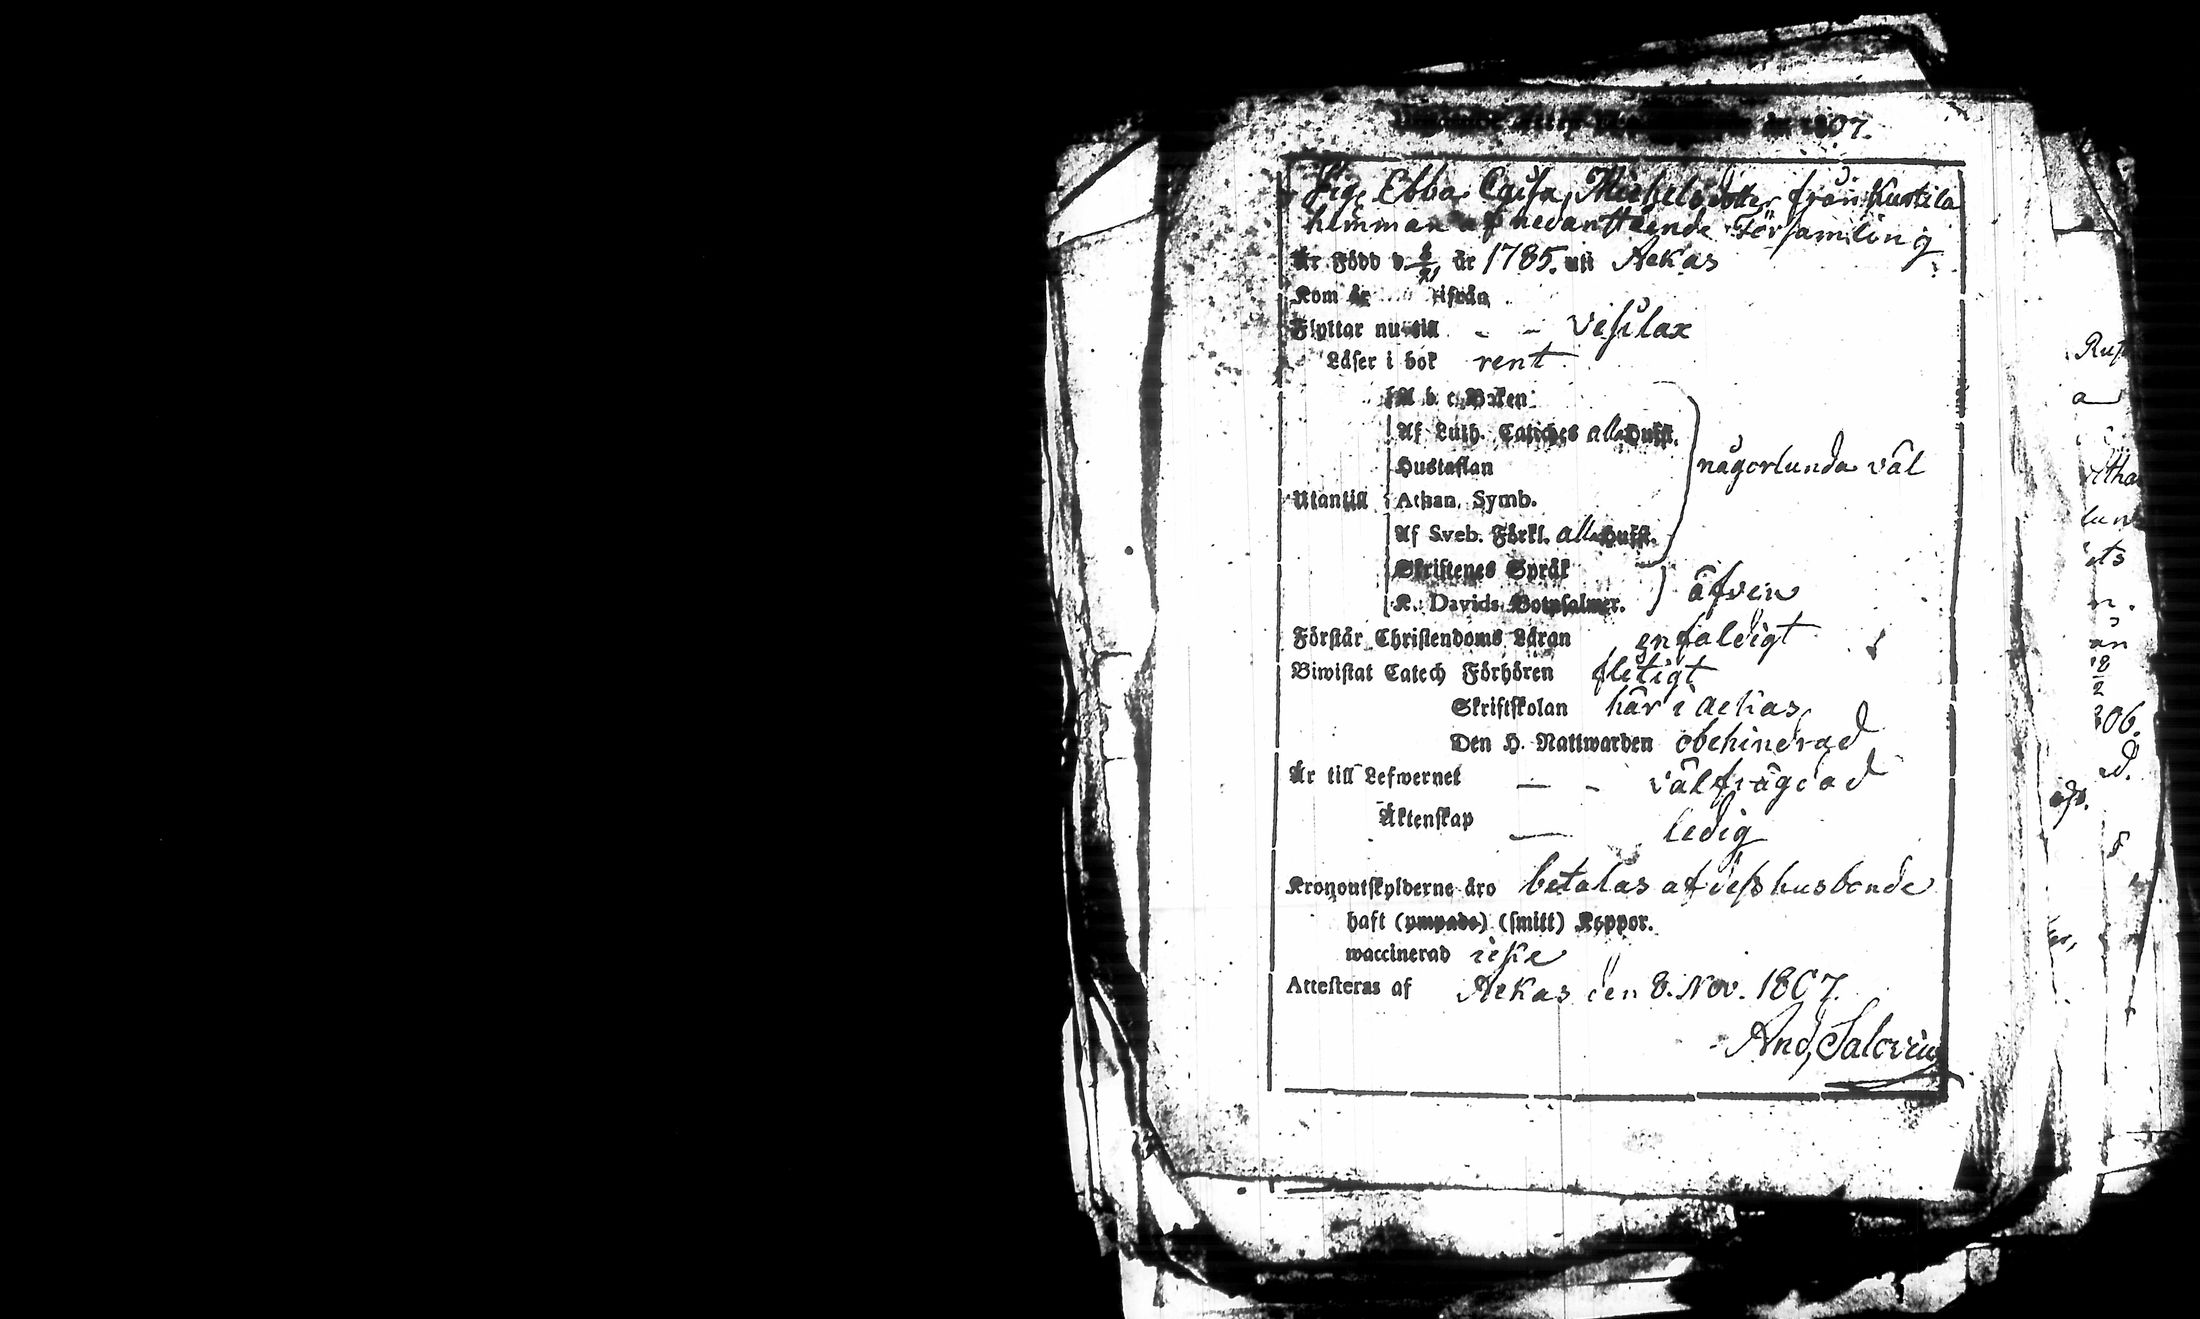 år 1807.
Pig. Ebba Caisa Michelsdotter från Kurtila
hemman af nedanstående Församling
Är Född d. 8/9 år 1785. uti Aekas
Kom år ifrån
Flyttar nu till - - Vesilax
Läser i bok rent
A b c Boken
Af Luth. Catiches alla Hufst.
Hustaflan
någorlunda väl
Utantill Athan. Symb.
Af Sveb. Förkl. alla Hufst.
Skriftenes Språk
K. Davids Botpsalmer. äfven
Förstår Christendoms Läran enfaldigt
Biwistat Catech Förhören flitigt
Skriftskolan här i Aekas
Den H. Nattwarden obehindrad
Är till Lefwernet — - välfrägdad
Äktenskap — ledig
Kronoutskylderne äro betalas af dess husbonde
haft (ympade) (smitt) Koppor.
waccinerad icke
Attesteras af Aekas den 8. Nov. 1807.
And. Salovius
Rus
a
lun
ets
n.
ån
18
2
306.
d.